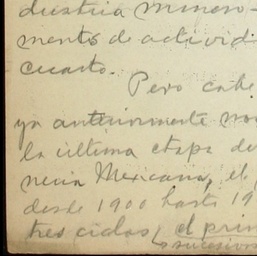 dustria minero-
mentos de activid
cuarto.
Pero cabe
ya anteriormente
la última etapa de
neria Mexicana, el
desde 1900 hasta 19
tres ciclos, el prim
sucesivos